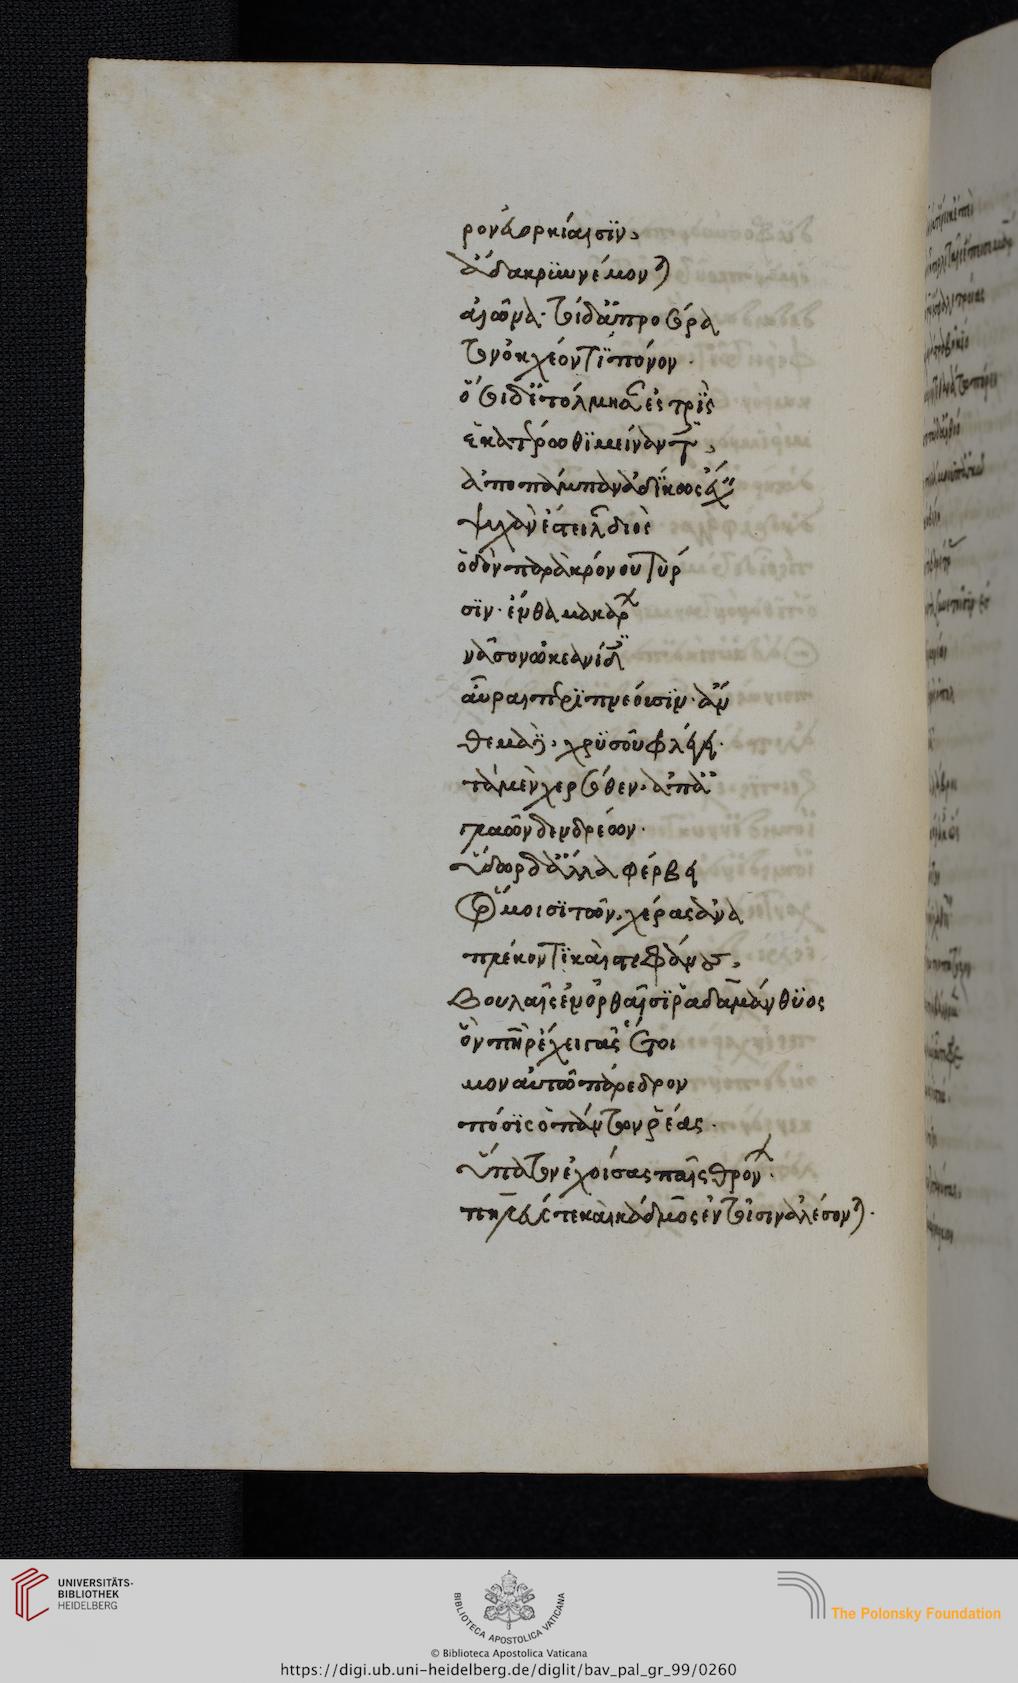 ρον εὐορκίαις ϊν,
ἄδακρϋν νέμονται
αἰῶνα· τοὶ δ' ἀπροσόρα
τον ὀκχέοντϊ πόνον·
ὅσοι δ' ἐτόλμασαν ἐς τρὶς
ἑκατέρωθϊ μείναντες,
ἀπὸ πάμπαν ἀδίκων ἔχειν
ψυχὰν ἔτειλαν διὸς
ὁδὸν παρὰ κρόνου τύρ
σϊν· ἔνθα μακάρων
νᾶσον ὠκεανίδες
αὖραι περιπνέοισϊν· ἄν
θεμα δὲ, χρϋσοῦ φλέγει·
τὰ μὲν χερσόθεν, ἀπ' ἀ
γλαῶν δενδρέων·
ὕδωρ δ' ἄλλα φέρβει
ὅρμοισϊ τῶν, χέρας ἀνα
πλέκοντϊ καὶ στεφάνοις,
βουλαῖς ἐν ὀρθαῖσϊ ῥαδαμάνθϋος
ὃν πατὴρ ἔχει γᾶς ἑτοῖ
μον αὐτῶ πάρεδρον
πόσϊς ὁ πάντων ῥέας·
ὕπατον ἐχοίσας παῖς θρόνον·
πηλεύς τε καὶ κάδμος ἐν τοῖσιν ἀλέγονται·
UNIVERSITÄTS-
BIBLIOTHEK
HEIDELBERG
BIBLIOTECA APOSTOLICA VATICANA
The Polonsky Foundation
© Biblioteca Apostolica Vaticana
https://digi.ub.uni-heidelberg.de/diglit/bav_pal_gr_99/0260